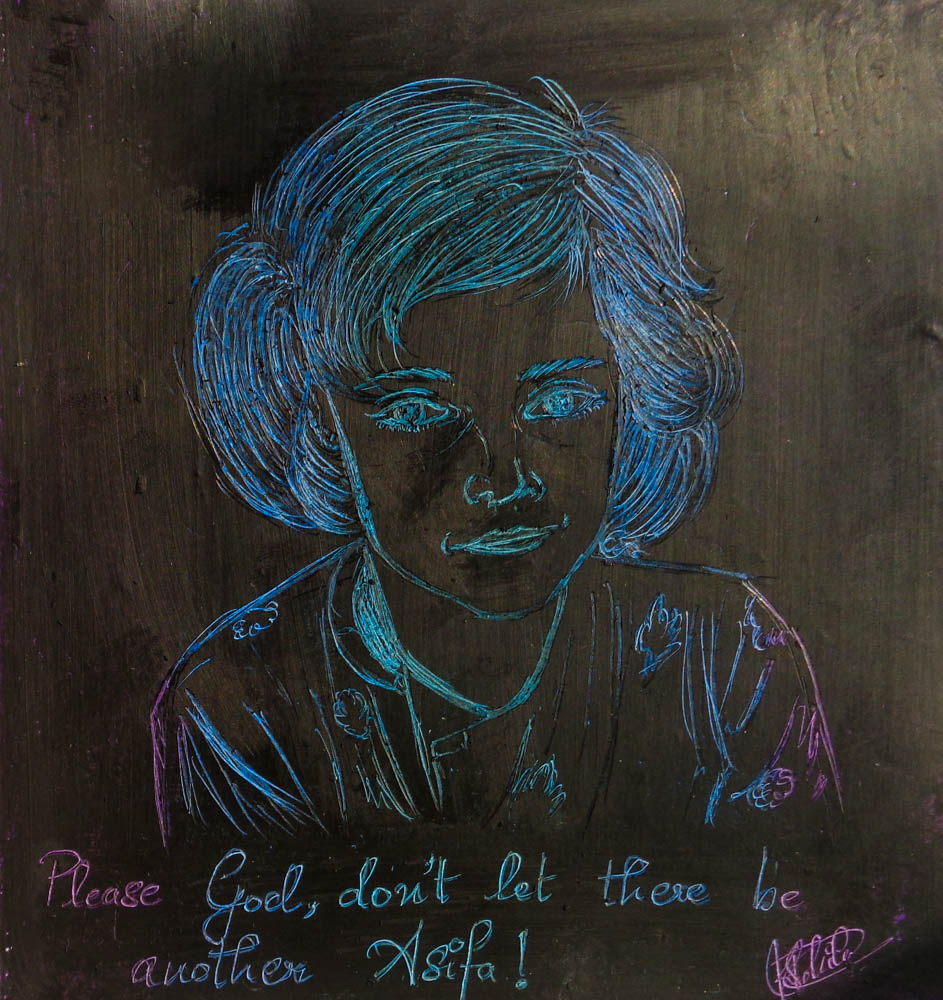 Please God, don't let there be
another Asifa!